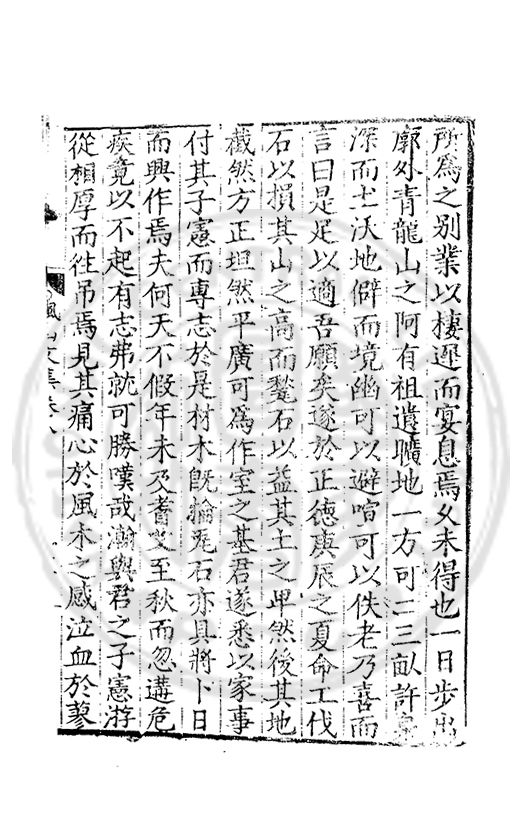 所爲之別業以棲遲而宴息焉久未得也一日步出
廓外青龍山之阿有祖遺曠地一方可二三畝許
深而土沃地僻而境幽可以避喧可以佚老乃喜而
言曰是足以適吾願矣遂於正德庚辰之夏命工伐
石以損其山之高而甃石以益其土之卑然後其地
截然方正坦然平廣可為作室之基君遂悉以家事
付其子憲而專志於是材木旣掄甃石亦具將卜日
而興作焉夫何天不假年未及耆艾至秋而忽遘危
疾竟以不起有志弗就可勝嘆哉瀚與君之子憲游
從相厚而往吊焉見其痛心於風木之感泣血於蓼
楓山文集卷八